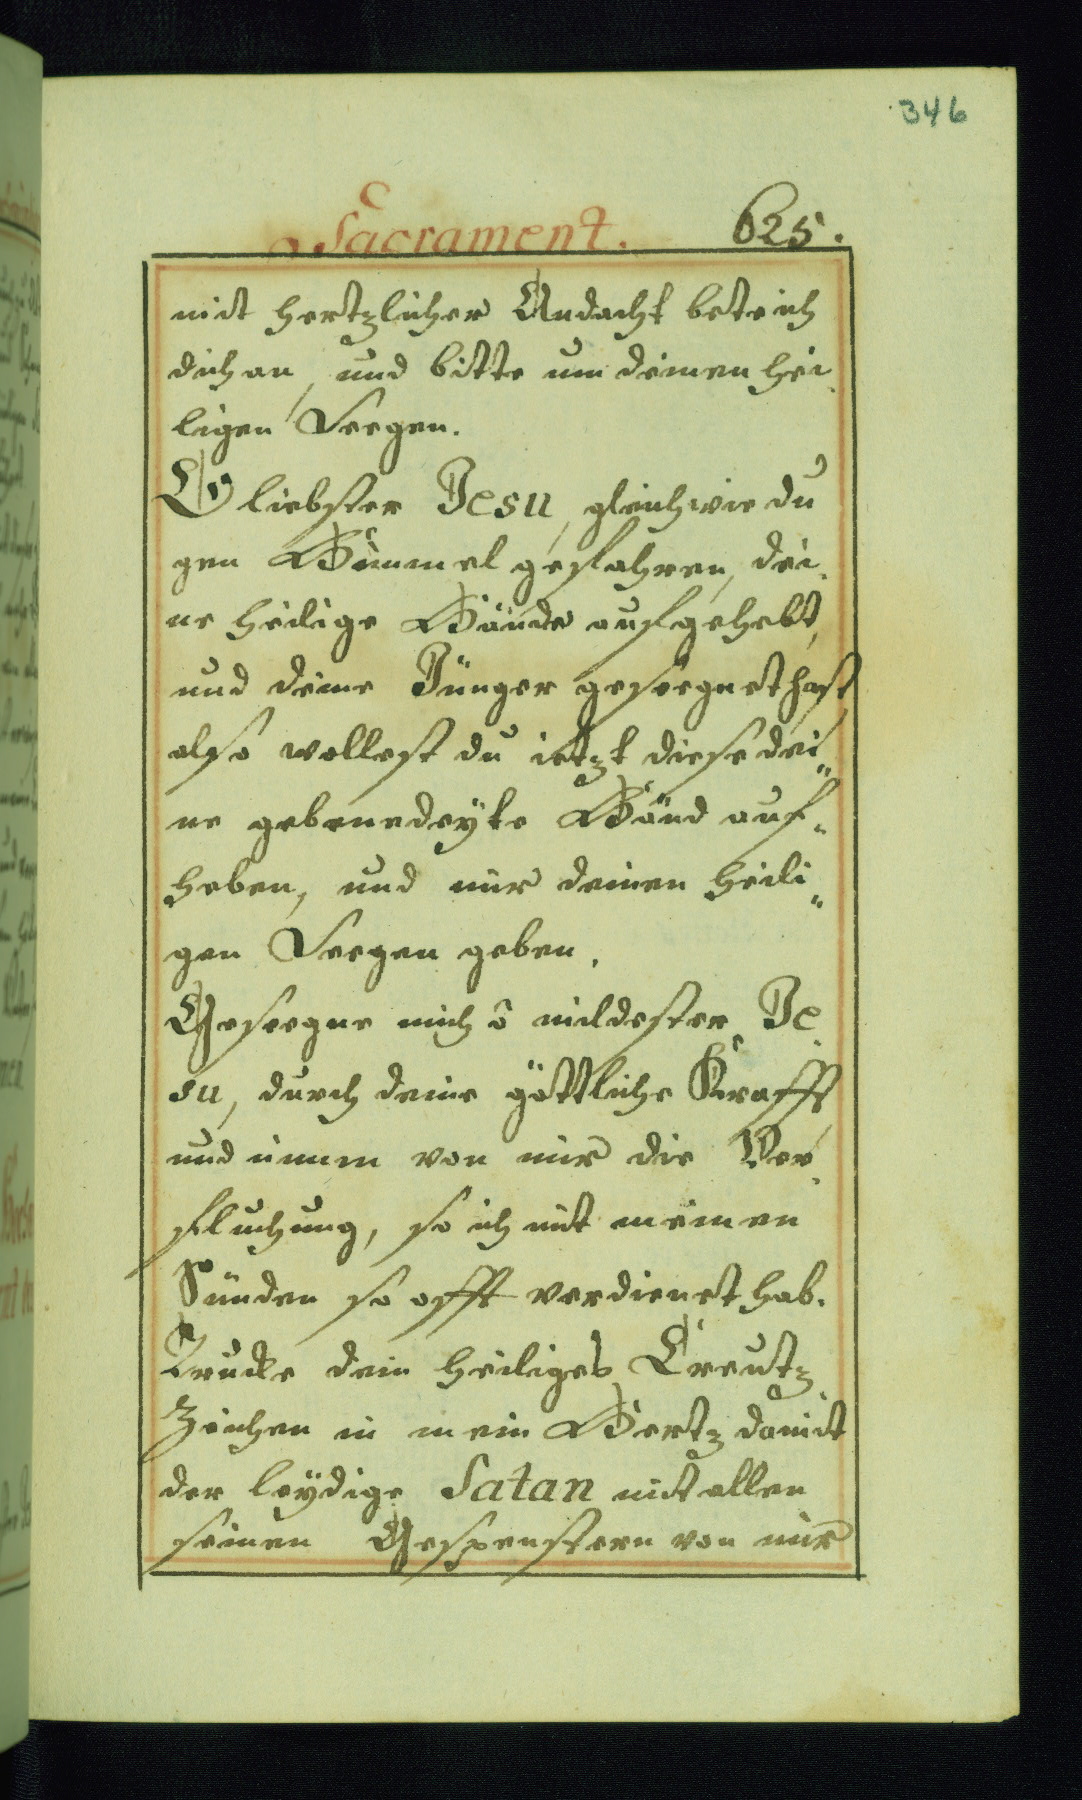 346
Sacrament. 625.
mit hertzlicher Andacht bete ich
dich an, und bitte um deinen hei-
ligen Seegen.
O liebster Jesu, gleich wie du
gen Himmel gefahren, dei-
ne heilige Hände aufgehebt,
und deine Jünger geseegnet hast,
also wollest du ietzt diese dei-
ne gebenedeyte Händ auf-
heben, und mir deinen heili-
gen Seegen geben.
Geseegne mich ô mildester Je-
su, durch deine göttliche Krafft
und nimm von mir die Ver-
fluchung, so ich mit meinen
Sünden so offt verdienet hab.
Trucke dein heiliges Creutz
Zeichen in mein Hertz damit
der leydige Satan mit allen
seinen Gespenstern von mir